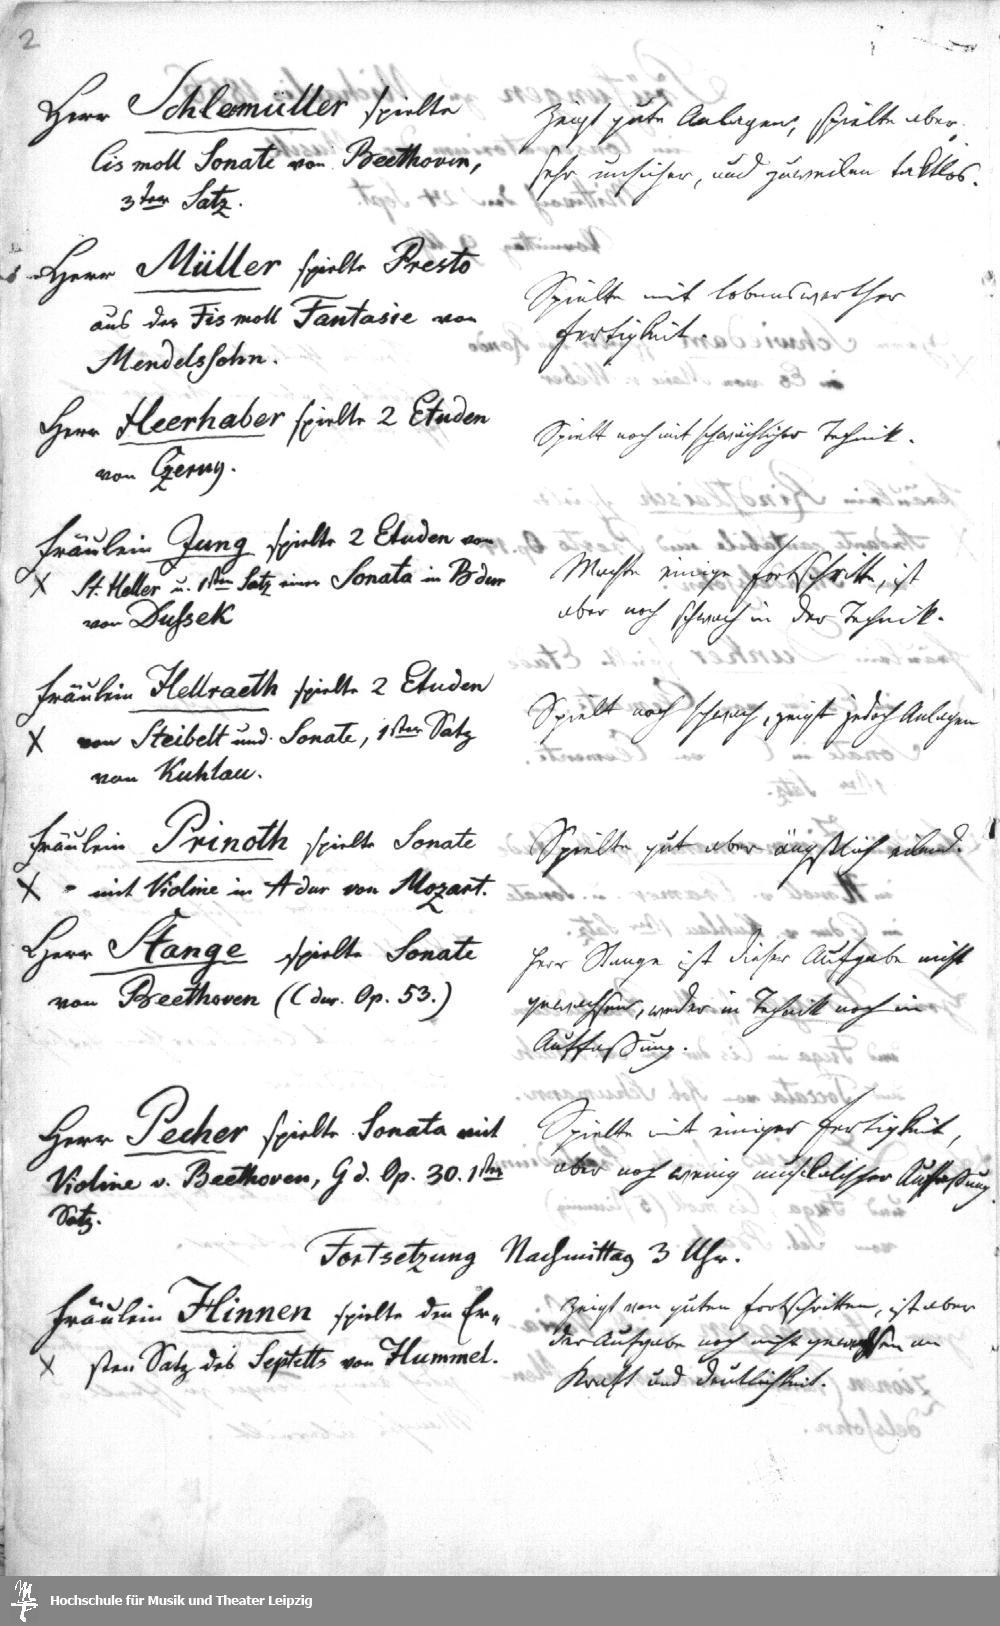 2
Herr Schlemüller spielte
Cis moll Sonate von Beethoven,
3ter Satz.
Zeigt gute Anlagen, spielte aber
sehr unsicher, und zuweilen taktlos.
Herr Müller spielte Presto
aus der Fis moll Fantasie von
Mendelssohn.
Spielte mit lobenswerther
Fertigkeit.
Herr Heerhaber spielte 2 Etuden
von Czerny.
Spielt noch mit schwächlicher Technik.
Fräulein Jung spielte 2 Etuden von
X St. Heller u. 1sten Satz einer Sonata in B dur
von Dussek
Machte einige Fortschritte, ist
aber noch schwach in der Technik.
Fräulein Hellraeth spielte 2 Etuden
X von Steibelt und Sonate, 1ster Satz
von Kuhlau.
Spielt noch schwach, zeigt jedoch Anlagen
Fräulein Prinoth spielte Sonate
X - mit Violine in A dur von Mozart.
Spielte gut aber ängstlich eilend.
Herr Stange spielte Sonate
von Beethoven (C dur. Op. 53.)
Herr Stange ist dieser Aufgabe nicht
gewachsen, weder in Technik noch in
Auffassung.
Herr Pecher spielte Sonata mit
Violine v. Beethoven, G d. Op. 30. 1ster
Satz.
Spielte mit einiger Fertigkeit,
aber noch wenig musikalischer Auffassung.
Fortsetzung Nachmittag 3 Uhr.
Fräulein Hinnen spielte den Er-
X sten Satz des Septetts von Hummel.
Zeigt von guten Fortschritten, ist aber
der Aufgabe noch nicht gewachsen an
Kraft und Deutlichkeit.
Hochschule für Musik und Theater Leipzig